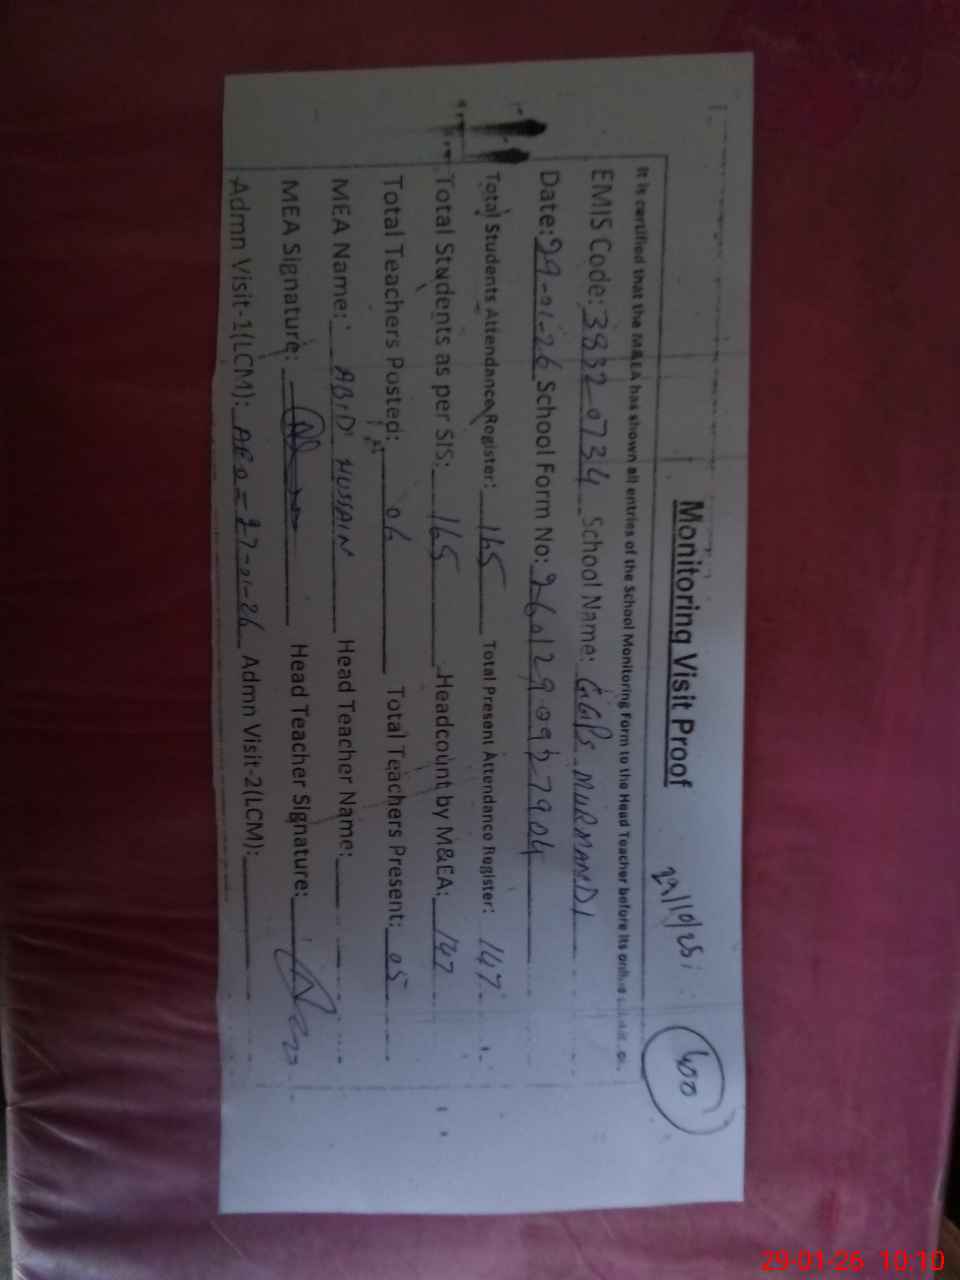 Monitoring Visit Proof 29/10/25 600
It is certified that the M&EA has shown all entries of the School Monitoring Form to the Head Teacher before its online
EMIS Code: 38320734 School Name: GGPS MURMANDI
Date: 29-01-26 School Form No:
Total Students Attendance Register: 165 Total Present Attendance Register: 147
Total Students as per SIS: 165 Headcount by M&EA: 147
Total Teachers Posted: 06 Total Teachers Present: 05
MEA Name: ABID HUSSAIN Head Teacher Name:
MEA Signature: Head Teacher Signature:
Admn Visit-1(LCM): AEO = 27-01-26 Admn Visit-2(LCM):
29-01-26 10:10